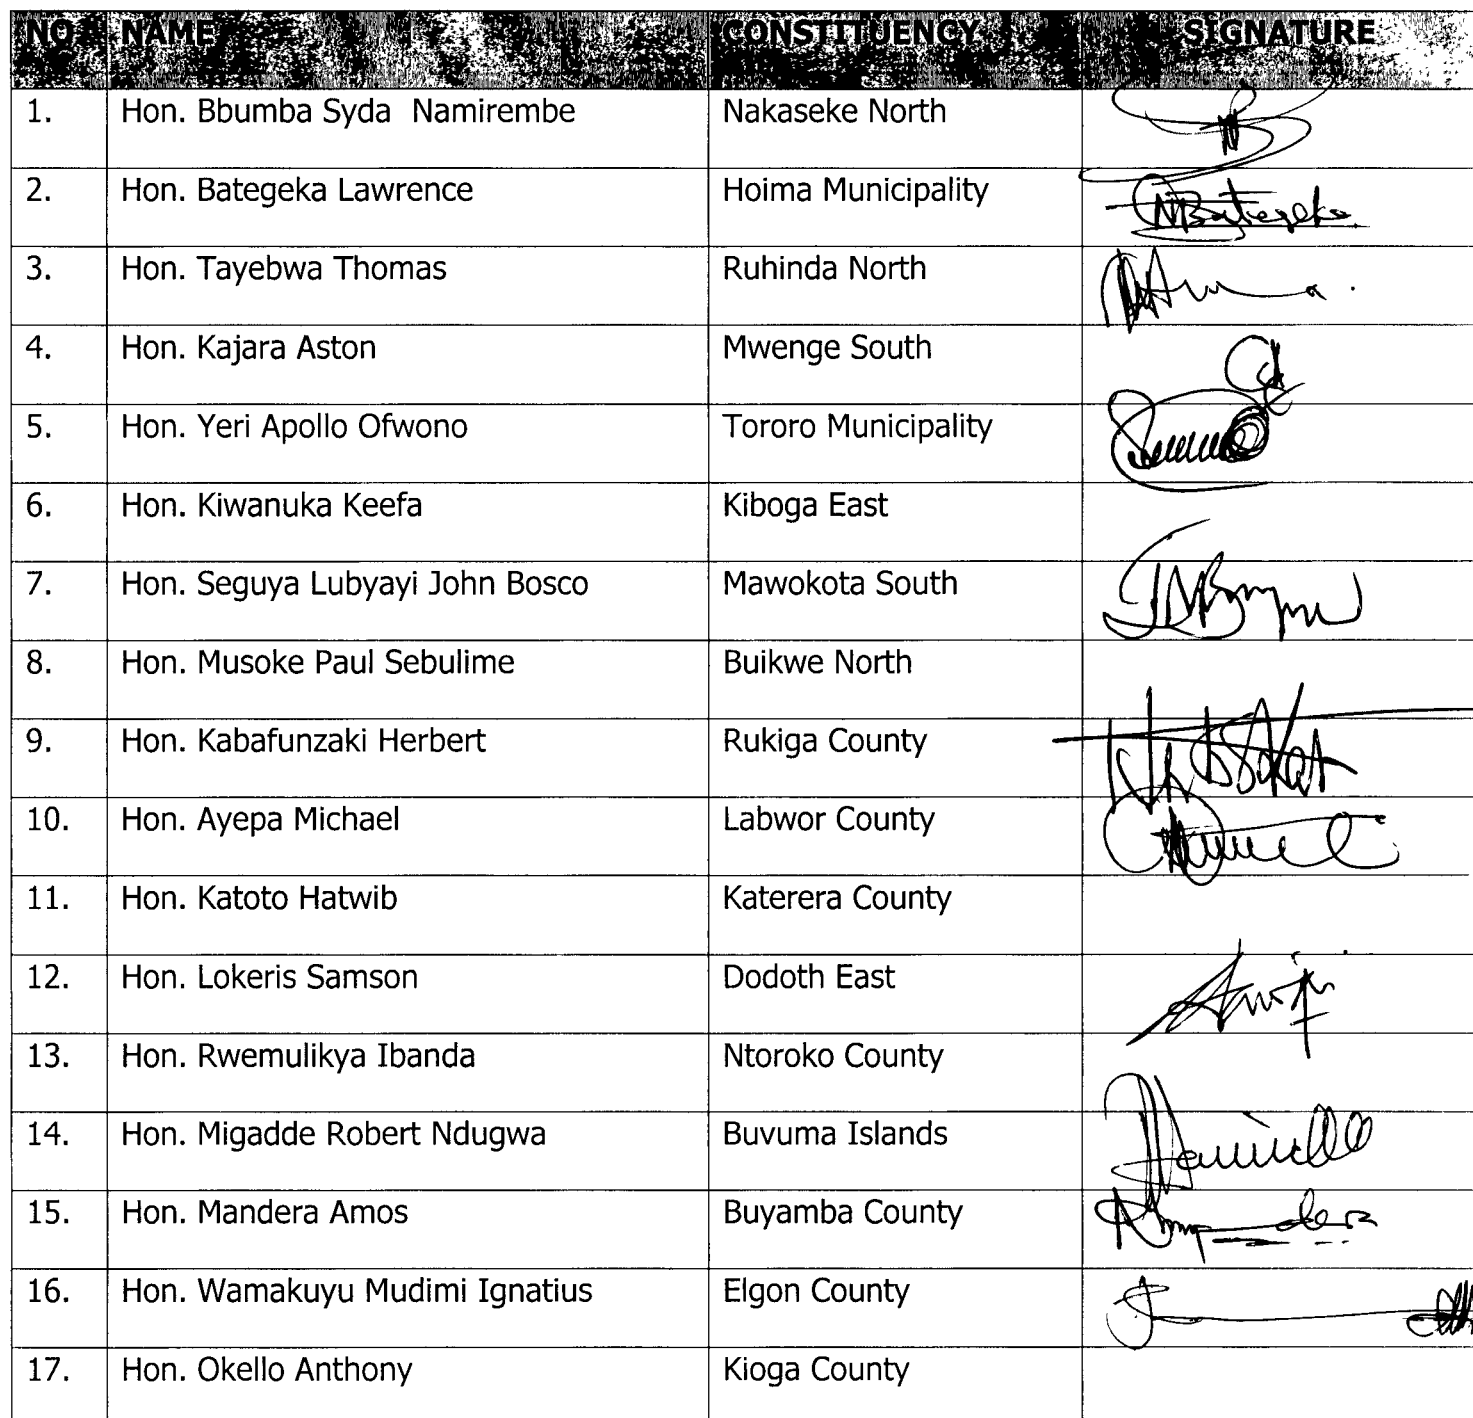 NO NAME CONSTITUENCY SIGNATURE
1. Hon. Bbumba Syda Namirembe Nakaseke North
2. Hon. Bategeka Lawrence Hoima Municipality
3. Hon. Tayebwa Thomas Ruhinda North
4. Hon. Kajara Aston Mwenge South
5. Hon. Yeri Apollo Ofwono Tororo Municipality
6. Hon. Kiwanuka Keefa Kiboga East
7. Hon. Seguya Lubyayi John Bosco Mawokota South
8. Hon. Musoke Paul Sebulime Buikwe North
9. Hon. Kabafunzaki Herbert Rukiga County
10. Hon. Ayepa Michael Labwor County
11. Hon. Katoto Hatwib Katerera County
12. Hon. Lokeris Samson Dodoth East
13. Hon. Rwemulikya Ibanda Ntoroko County
14. Hon. Migadde Robert Ndugwa Buvuma Islands
15. Hon. Mandera Amos Buyamba County
16. Hon. Wamakuyu Mudimi Ignatius Elgon County
17. Hon. Okello Anthony Kioga County